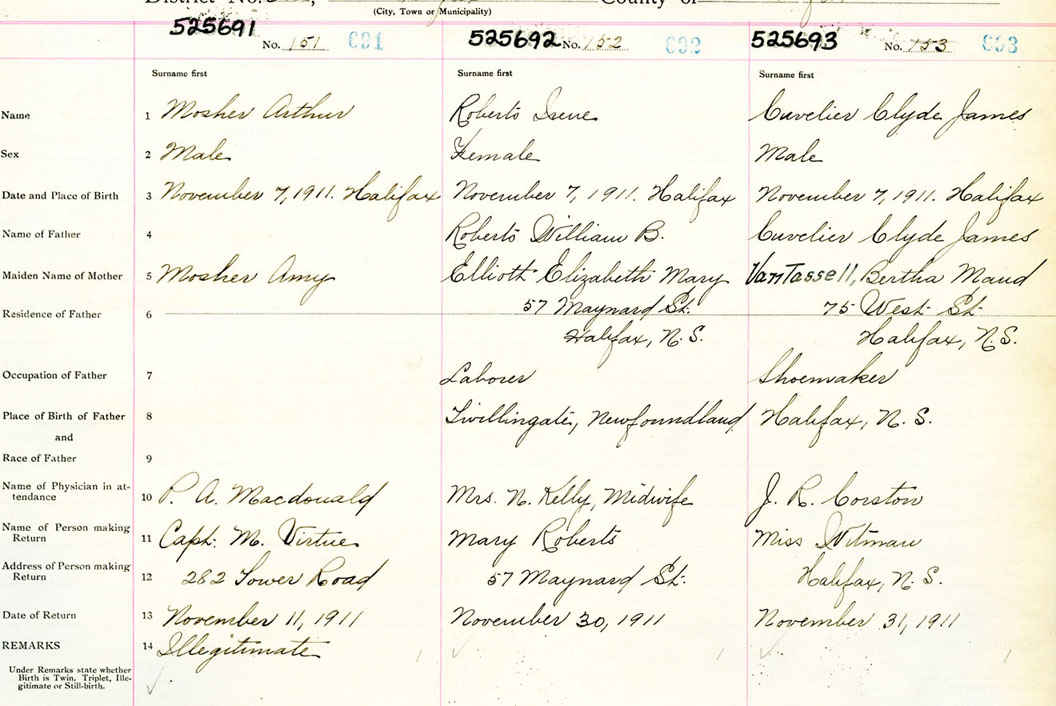 (City, Town or Municipality)
525691 No. 151 691
525692 No. 152 692
525693 No. 153 693
Surname first Surname first Surname first
Name 1 Mosher Arthur Roberts Irene Cuvelier Clyde James
Sex 2 Male Female Male
Date and Place of Birth 3 November 7, 1911. Halifax November 7, 1911. Halifax November 7, 1911. Halifax
Name of Father 4 Roberts William B. Cuvelier Clyde James
Maiden Name of Mother 5 Mosher Amy Elliott Elizabeth Mary VanTassell, Bertha Maud
Residence of Father 6 57 Maynard St. 75 West St.
Halifax, N.S. Halifax, N.S.
Occupation of Father 7 Laborer Shoemaker
Place of Birth of Father 8 Twillingate, Newfoundland Halifax, N.S.
and
Race of Father 9
Name of Physician in at-
tendance 10 P. A. Macdonald Mrs. N. Kelly, Midwife J. R. Corston
Name of Person making
Return 11 Capt. M. Virtue Mary Roberts Miss Witman
Address of Person making
Return 12 282 Tower Road 57 Maynard St. Halifax, N.S.
Date of Return 13 November 11, 1911 November 30, 1911 November 31, 1911
REMARKS 14 Illegitimate
Under Remarks state whether
Birth is Twin, Triplet, Ille-
gitimate or Still-birth.